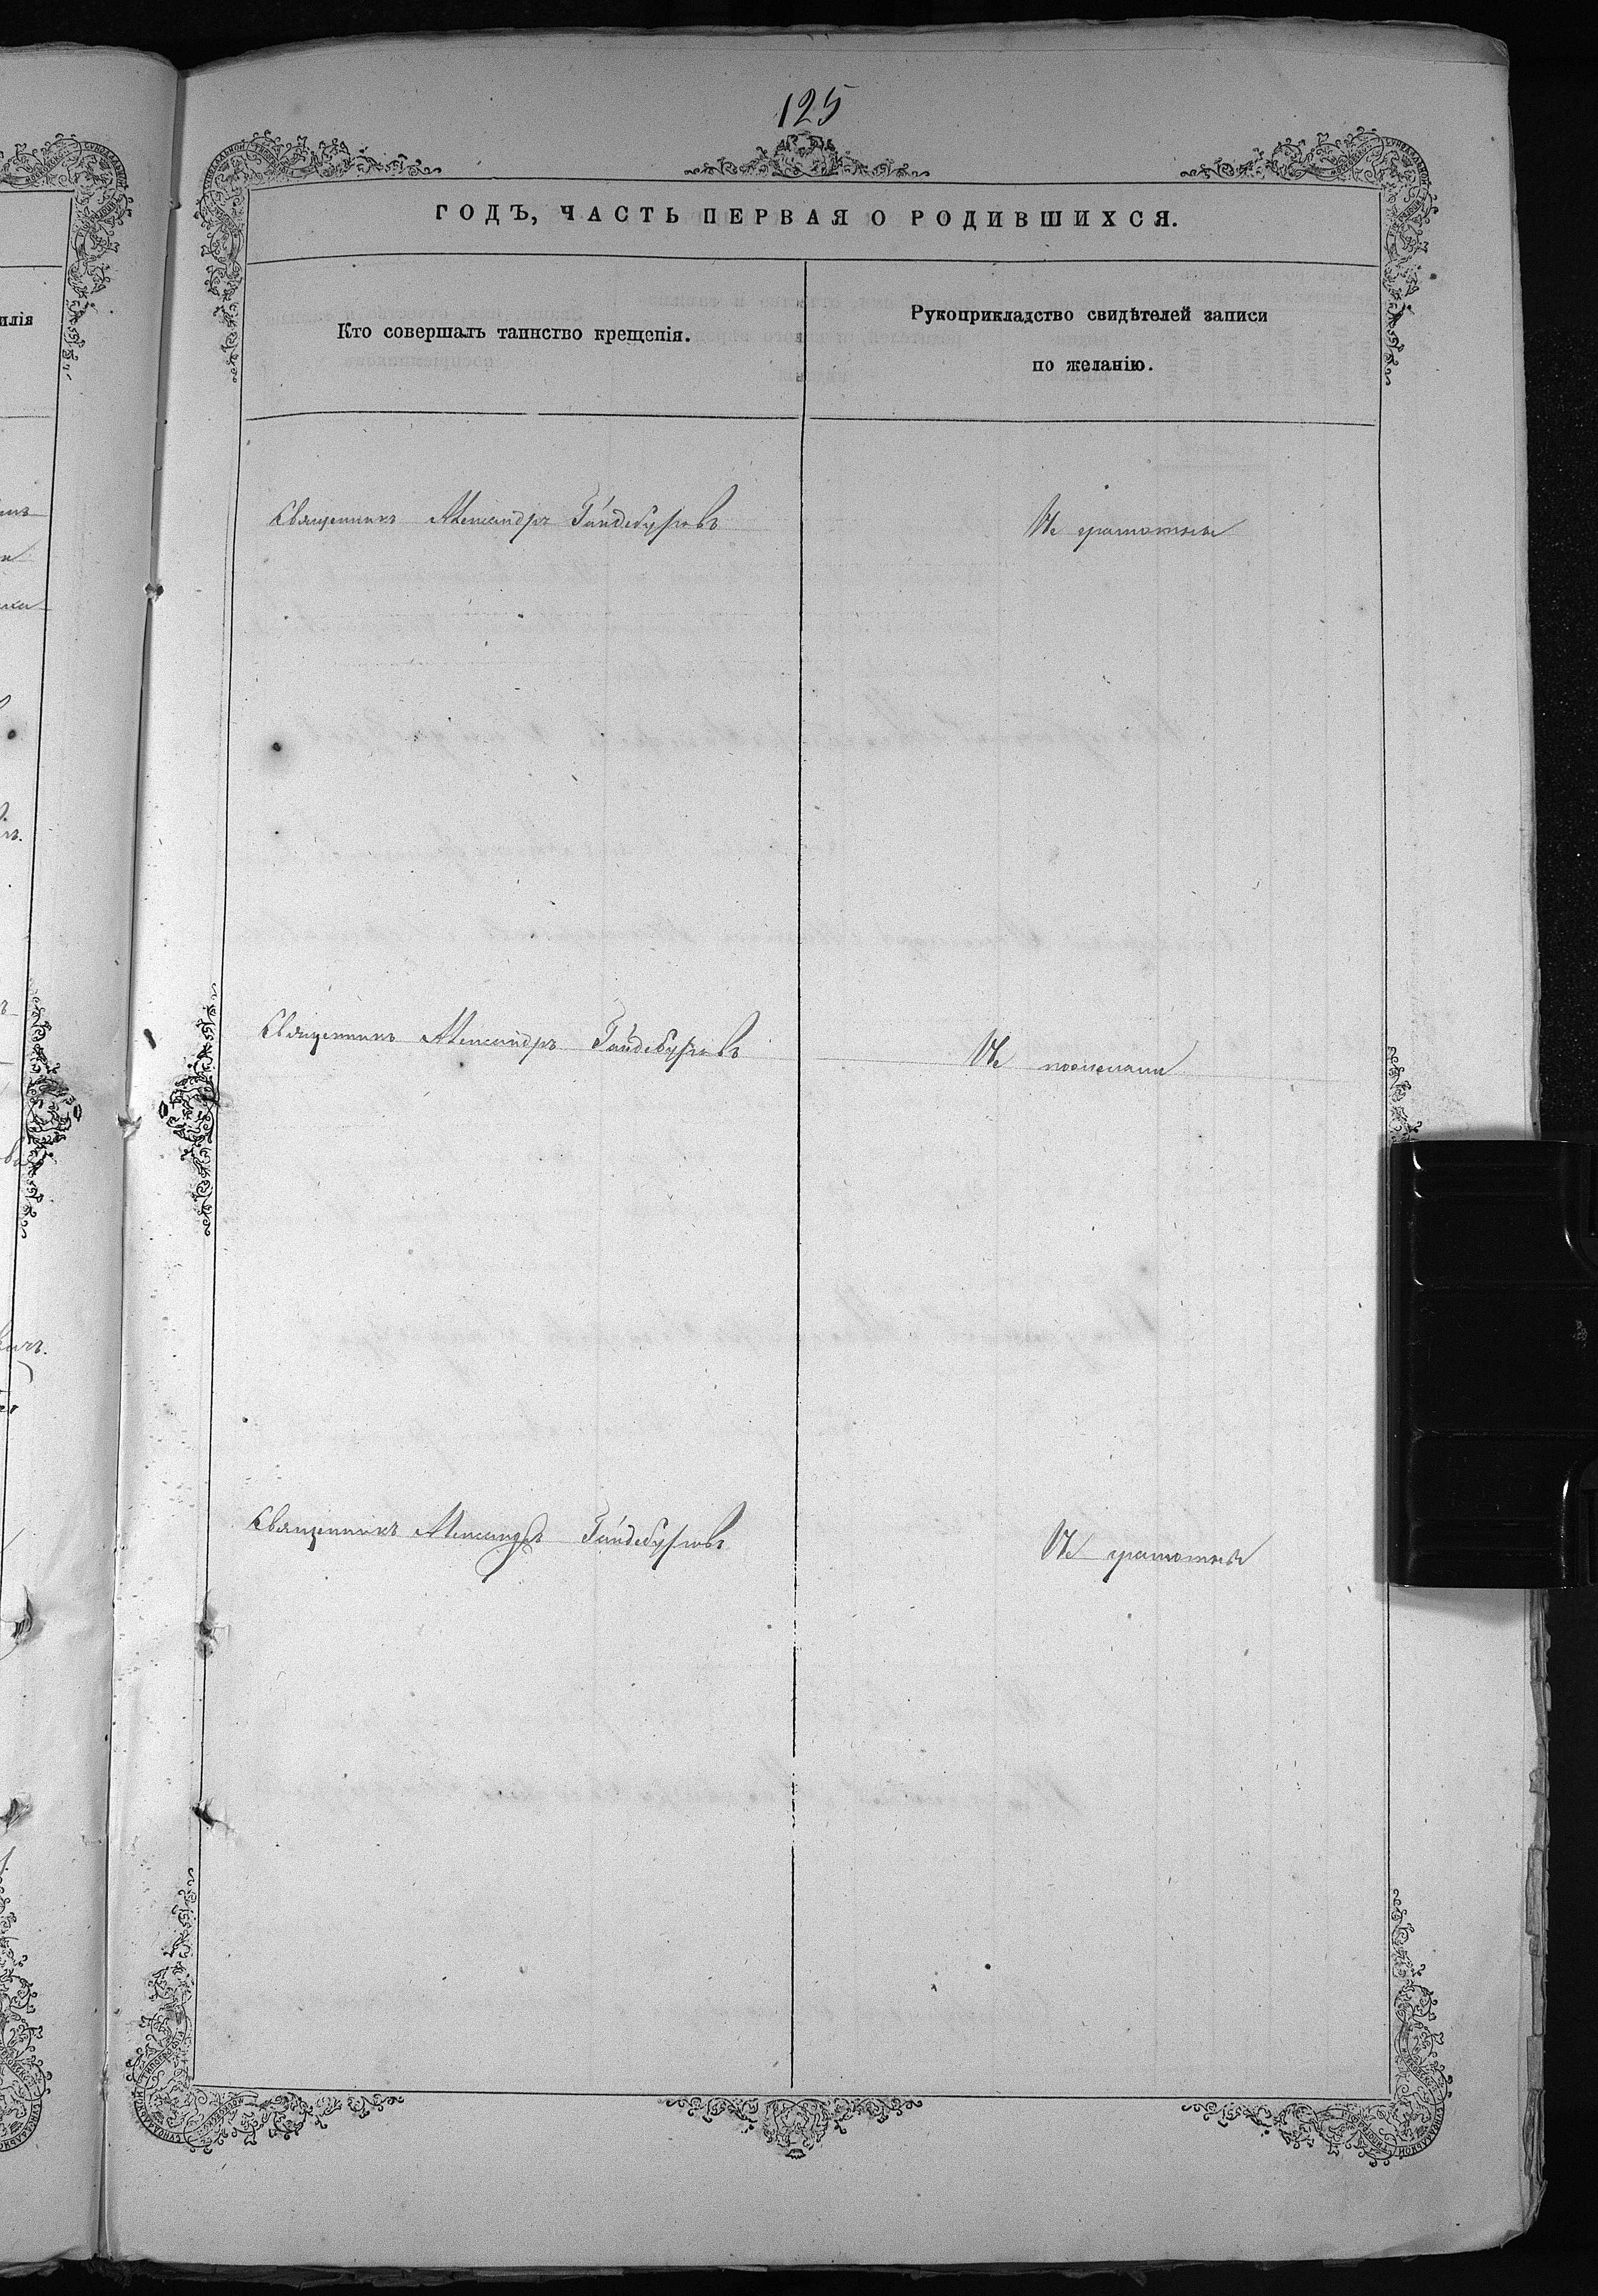 125
ГОДЪ, ЧАСТЬ ПЕРВАЯ О РОДИВШИХСЯ.
илія
Кто совершалъ таинство крещенія.
Рукоприкладство свидѣтелей записи
по желанію.
Священникъ Александръ Гайдебуровъ
Не грамотны
Священникъ Александръ Гайдебуровъ
Не пожелали
Священникъ Александръ Гайдебуровъ
Не грамотны